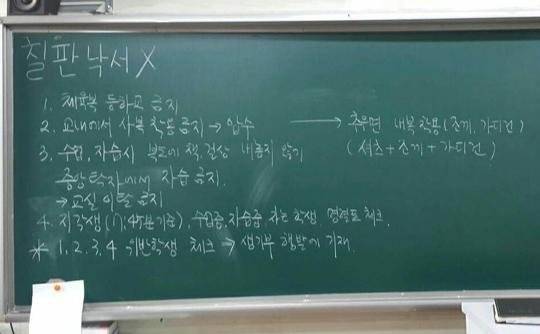 칠판낙서 X
1. 체육복 등하교 금지
2. 교내에서 사복 착용금지 → 압수 → 추우면 내복 착용 (조끼, 가디건)
(셔츠 + 조끼 + 가디건)
3. 수업, 자습시 복도에 책, 걸상 내놓지 않기
중앙탁자에서 자습 금지.
→ 교실 이탈 금지
4. 지각생 (7:45분 기준), 수업중, 자습중 자는 학생 체크.
* 1, 2, 3, 4 위반학생 체크 → 생기부 행발에 기재.